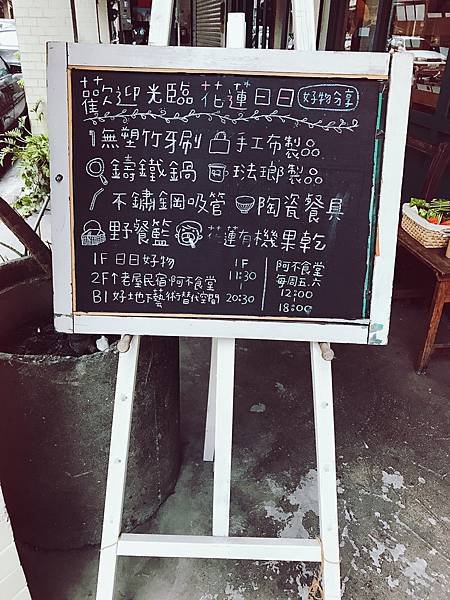 歡迎光臨 花蓮日日 好物分享
無塑竹牙刷 手工布製品
鑄鐵鍋 琺瑯製品
不鏽鋼吸管 陶瓷餐具
野餐籃 花蓮有機果乾
1F 日日好物
2F↑老屋民宿·阿不食堂
B1 好地下藝術替代空間
1F
11:30
|
20:30
阿不食堂
每周五.六
12:00
|
18:00